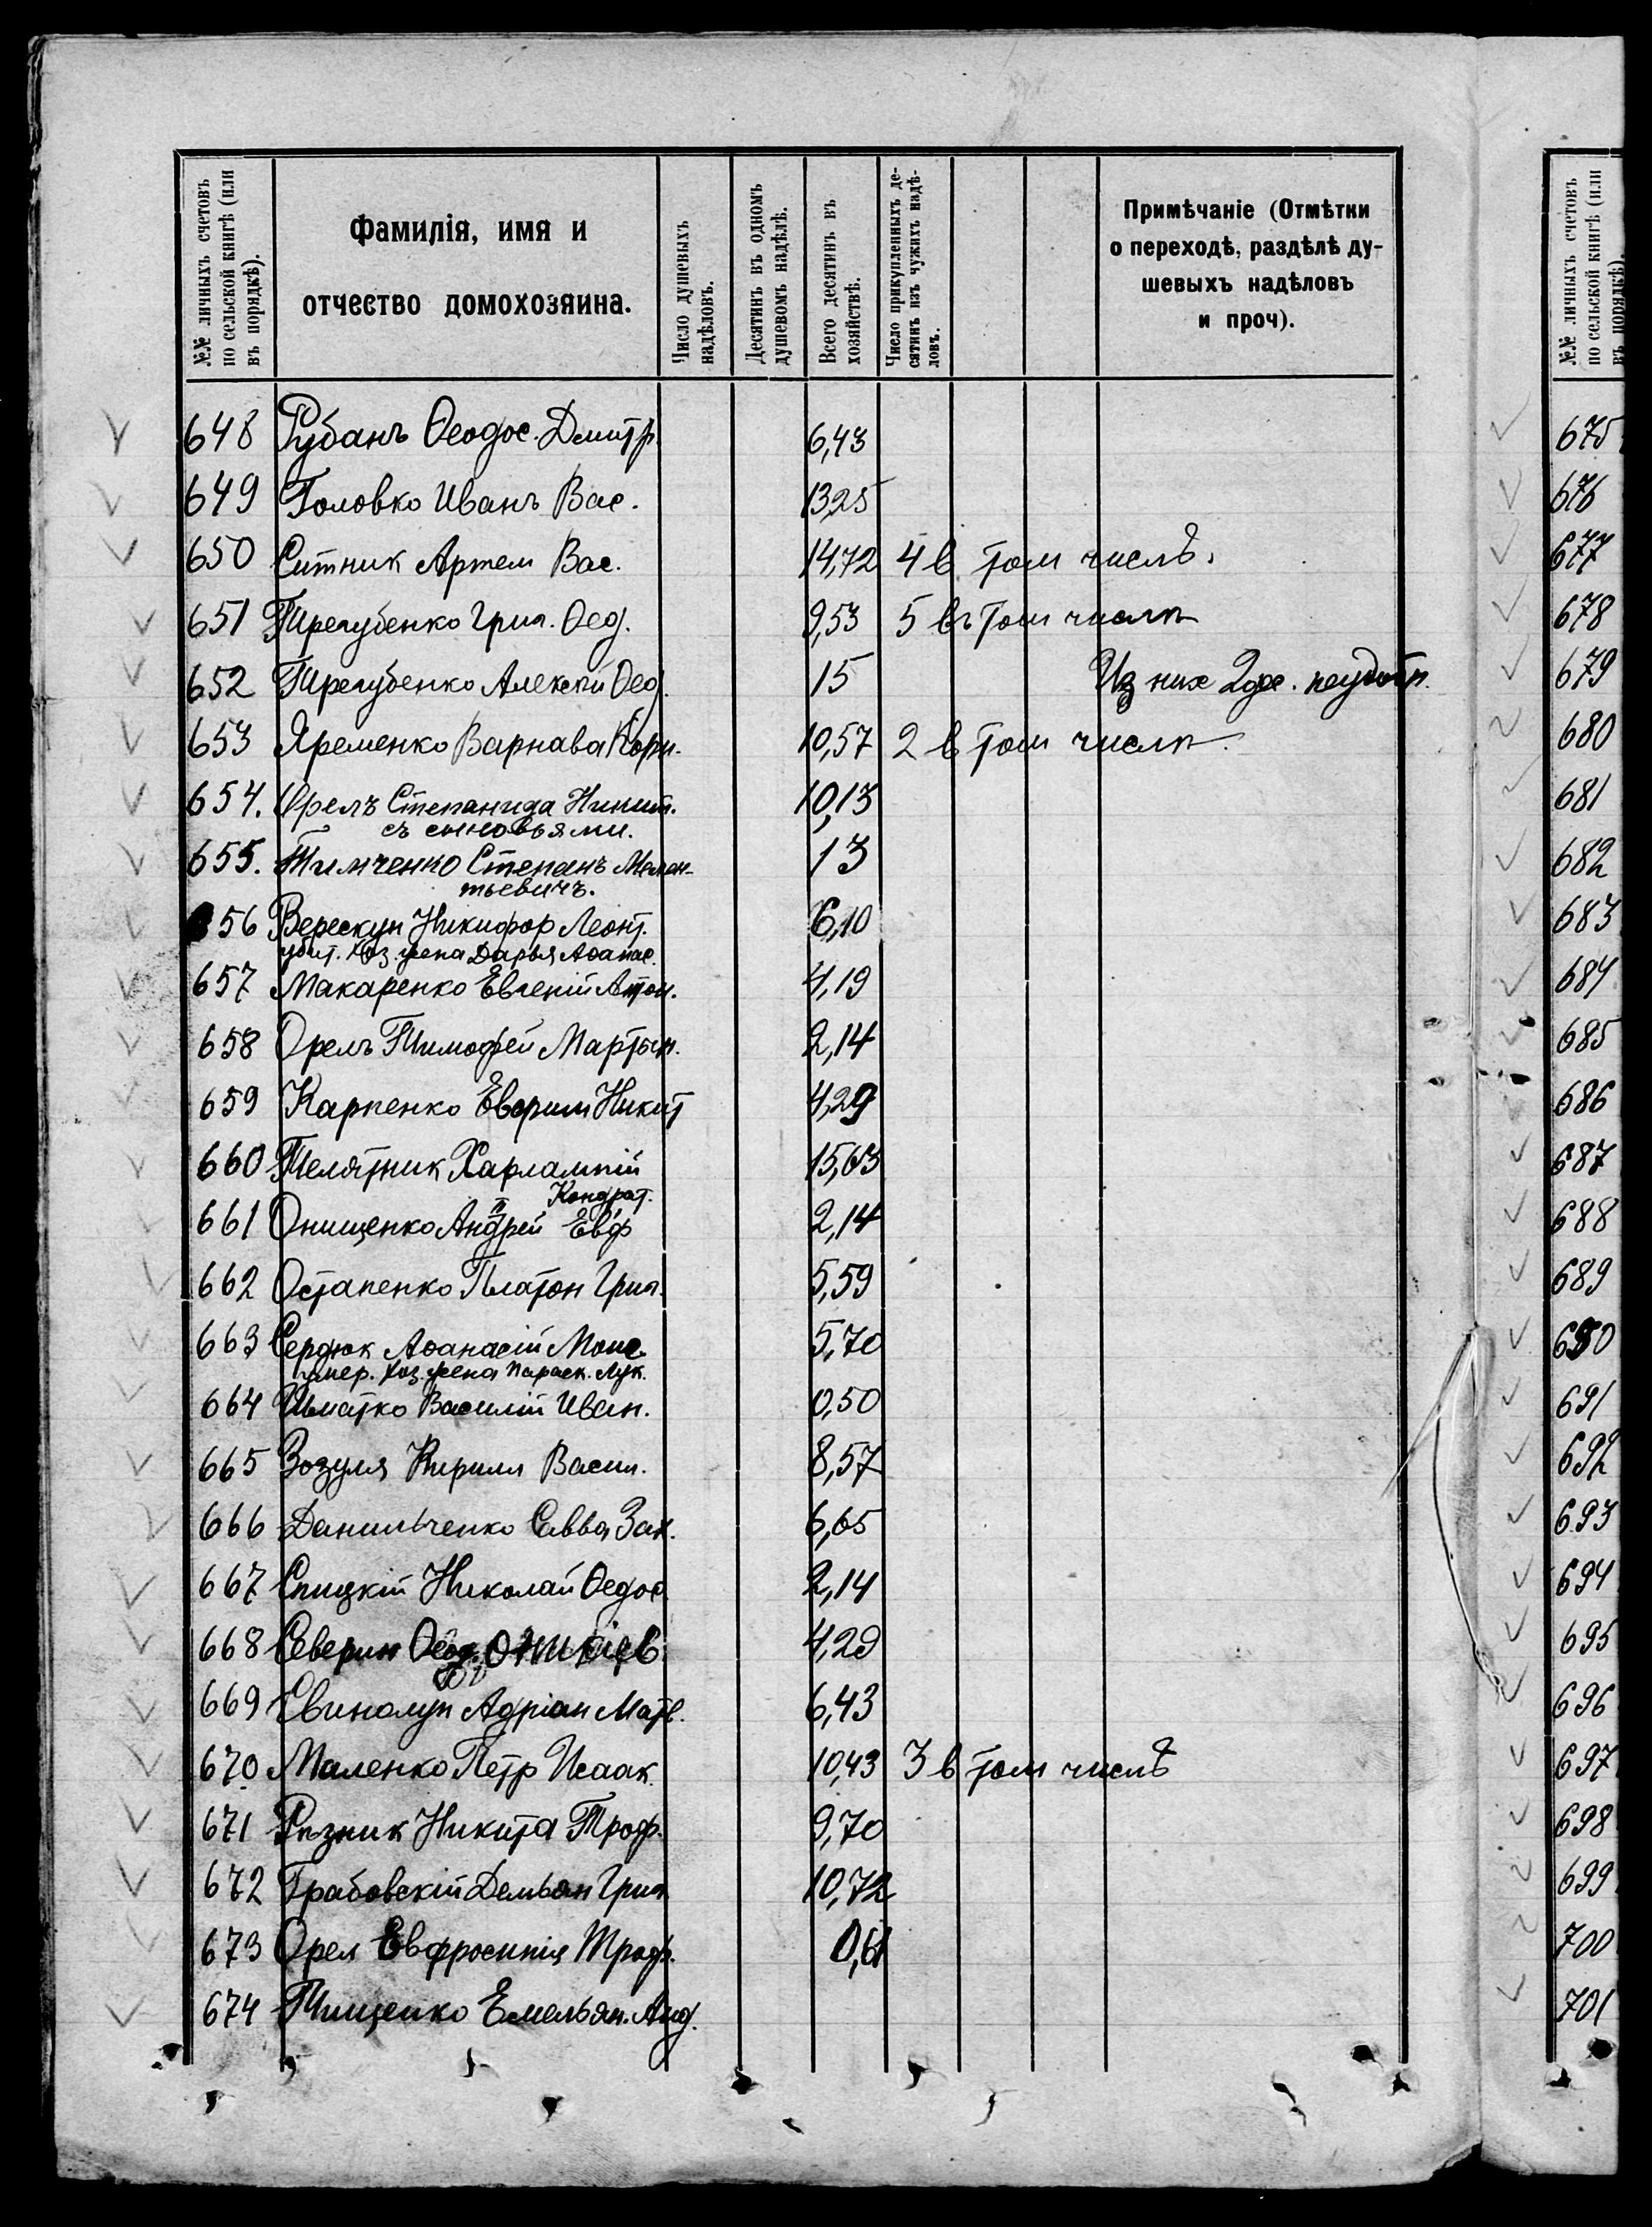 №№ личныхъ счетовъ по сельской книгѣ (или въ порядкѣ).
Фамилія, имя и отчество домохозяина.
Число душевыхъ надѣловъ.
Десятинъ въ одномъ душевомъ надѣлѣ.
Всего десятинъ въ хозяйствѣ.
Число прикупленныхъ десятинъ изъ чужихъ надѣловъ.
Примѣчаніе (Отмѣтки о переходѣ, раздѣлѣ душевыхъ надѣловъ и проч).
648 Рубанъ Ѳеодос. Дмитр. 6,43
649 Головко Иванъ Вас. 13,25
650 Ситник Артем Вас. 14,72 4 в том числѣ.
651 Трегубенко Григ. Ѳед. 9,53 5 въ том числѣ
652 Трегубенко Алексѣй Ѳед. 15 Из них 2 дес.
653 Яременко Варнава Корн. 10,57 2 в том числѣ.
654. Орелъ Степанида Никит. 10,13
съ сыновьями.
655. Тимченко Степанъ Мелен- 13
тьевичъ.
656 Верескун Никифор Леонт. 6,10
убит. Хоз. жена Дарья Аѳанас.
657 Макаренко Евгеній Антон. 4,19
658 Орелъ Тимофей Мартын. 2,14
659 Карпенко Еврим Никит 4,29
660 Телятник Харлампій 15,63
Кондрат.
661 Онищенко Андрей Евф 2,14
662 Остапенко Платон Григ. 5,59
663 Сердюк Аѳанасій Моис. 5,70
умер. хоз. жена Параск. Лук.
664 Шматко Василій Иван. 0,50
665 Зозуля Кирилл Васил. 8,57
666 Данильченко Савва Зах. 6,65
667 Спицкій Николай Ѳедос. 2,14
668 Северин Ѳеод. 4,29
669 Евинолуп Адріан Матв. 6,43
670 Маленко Петр Исаак. 10,43 3 в том числѣ
671 Рѣзник Никита Троф. 9,70
672 Грабовскій Демьян Григ. 10,72
673 Орел Евфросинія Троф. 0,61
674 Тищенко Емельян. Анд.
№№ личныхъ счетовъ по сельской книгѣ (или въ порядкѣ).
675
676
677
678
679
680
681
682
683
684
685
686
687
688
689
690
691
692
693
694
695
696
697
698
699
700
701